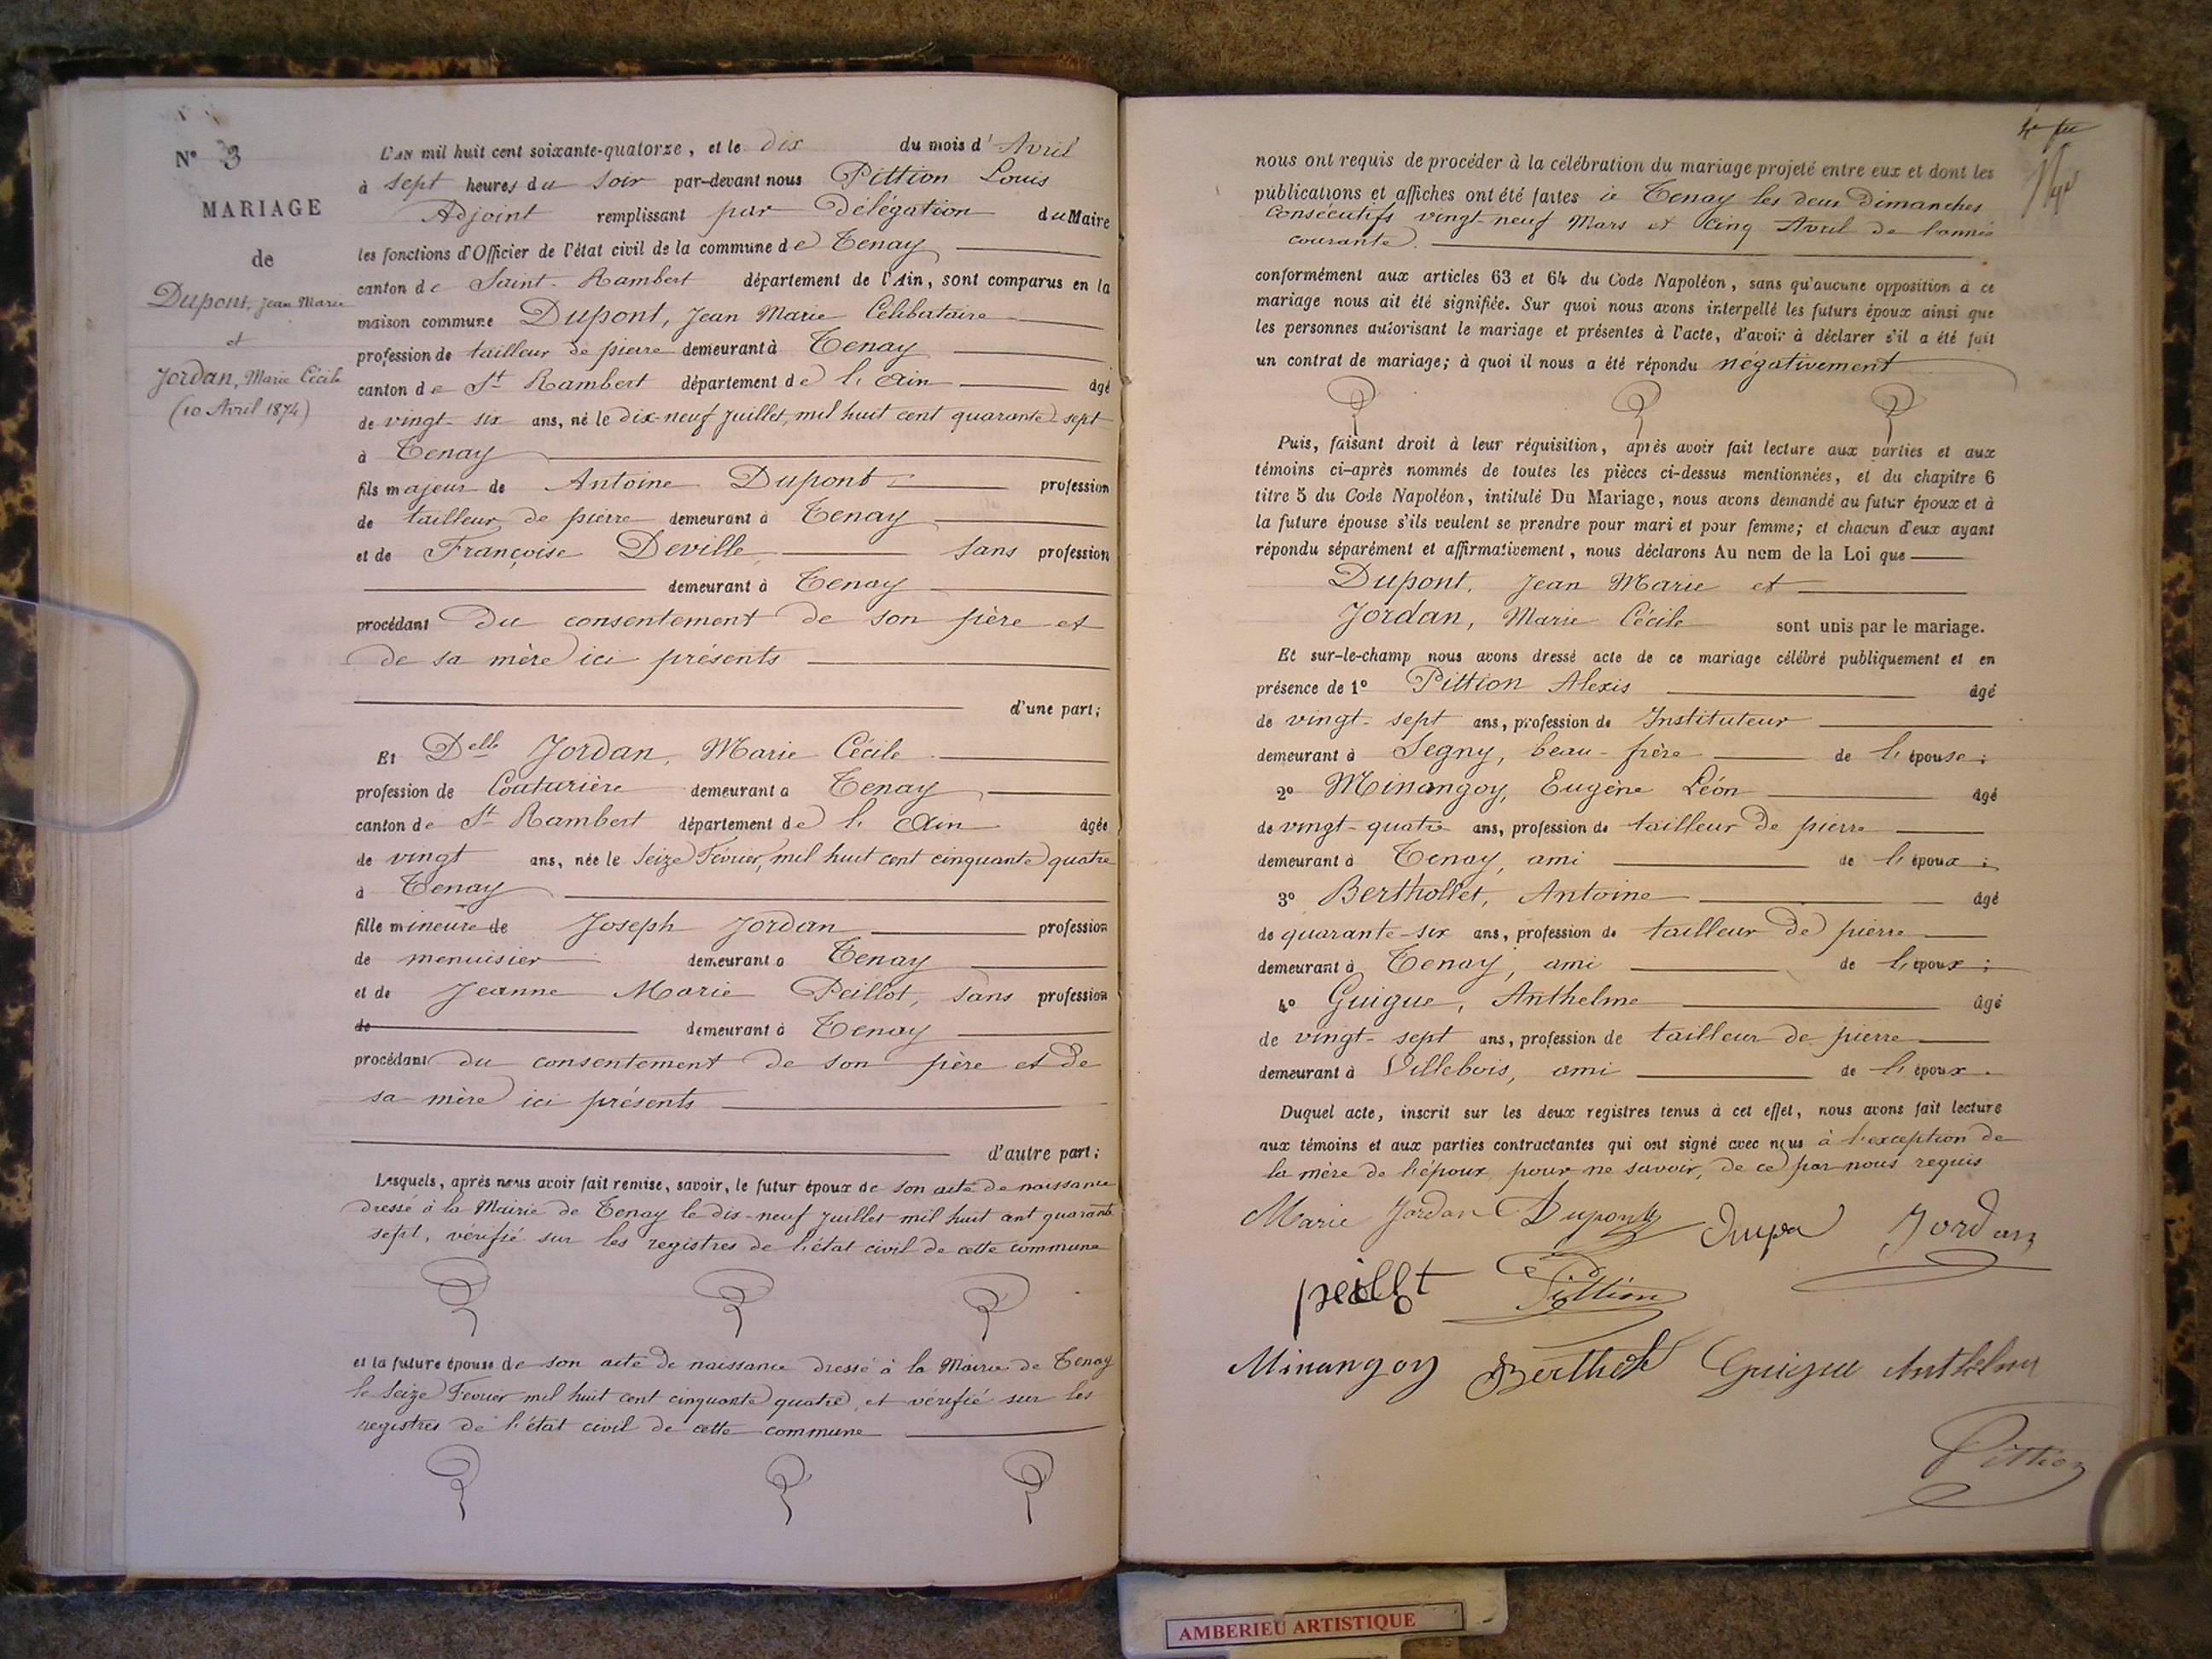 N° 3
MARIAGE
de
Dupont, Jean Marie
et
Jordan, Marie Cécile
(10 Avril 1874)
L'AN mil huit cent soixante-quatorze, et le dix du mois d'Avril
à sept heures du soir par-devant nous Pittion Louis
Adjoint remplissant par Délégation du Maire
les fonctions d'Officier de l'état civil de la commune de Tenay
canton de Saint-Rambert département de l'Ain, sont comparus en la
maison commune Dupont, Jean Marie Célibataire
profession de tailleur de pierre demeurant à Tenay
canton de St Rambert département de l'Ain âgé
de vingt-six ans, né le dix-neuf Juillet, mil huit cent quarante sept
à Tenay
fils majeur de Antoine Dupont profession
de tailleur de pierre demeurant à Tenay
et de Françoise Deville sans profession
demeurant à Tenay
procédant du consentement de son père et
de sa mère ici présents
d'une part;
Et Delle Jordan, Marie Cécile
profession de Couturière demeurant à Tenay
canton de St Rambert département de l'Ain âgée
de vingt ans, née le Seize Février, mil huit cent cinquante quatre
à Tenay
fille mineure de Joseph Jordan profession
de menuisier demeurant à Tenay
et de Jeanne Marie Peillot, sans profession
de demeurant à Tenay
procédant du consentement de son père et de
sa mère ici présents
d'autre part;
Lesquels, après nous avoir fait remise, savoir, le futur époux de son acte de naissance
dressé à la Mairie de Tenay le dix-neuf Juillet mil huit cent quarante
sept, vérifié sur les registres de l'état civil de cette commune
et la future épouse de son acte de naissance dressé à la Mairie de Tenay
le Seize Février mil huit cent cinquante quatre, et vérifié sur les
registres de l'état civil de cette commune
nous ont requis de procéder à la célébration du mariage projeté entre eux et dont les
publications et affiches ont été faites à Tenay les deux Dimanches
consécutifs vingt-neuf Mars et cinq Avril de l'année
courante.
conformément aux articles 63 et 64 du Code Napoléon, sans qu'aucune opposition à ce
mariage nous ait été signifiée. Sur quoi nous avons interpellé les futurs époux ainsi que
les personnes autorisant le mariage et présentes à l'acte, d'avoir à déclarer s'il a été fait
un contrat de mariage; à quoi il nous a été répondu négativement
Puis, faisant droit à leur réquisition, après avoir fait lecture aux parties et aux
témoins ci-après nommés de toutes les pièces ci-dessus mentionnées, et du chapitre 6
titre 5 du Code Napoléon, intitulé Du Mariage, nous avons demandé au futur époux et à
la future épouse s'ils veulent se prendre pour mari et pour femme; et chacun d'eux ayant
répondu séparément et affirmativement, nous déclarons Au nom de la Loi que
Dupont, Jean Marie et
Jordan, Marie Cécile sont unis par le mariage.
Et sur-le-champ nous avons dressé acte de ce mariage célébré publiquement et en
présence de 1° Pittion Alexis âgé
de vingt-sept ans, profession de Instituteur
demeurant à Segny, beau-frère de l'épouse;
2° Minangoy, Eugène Léon âgé
de vingt-quatre ans, profession de tailleur de pierre
demeurant à Tenay, ami de l'époux;
3° Berthollet, Antoine âgé
de quarante-six ans, profession de tailleur de pierre
demeurant à Tenay, ami de l'époux;
4° Guigue, Anthelme âgé
de vingt-sept ans, profession de tailleur de pierre
demeurant à Villebois, ami de l'époux.
Duquel acte, inscrit sur les deux registres tenus à cet effet, nous avons fait lecture
aux témoins et aux parties contractantes qui ont signé avec nous à l'exception de
la mère de l'époux, pour ne savoir, de ce par nous requis
Marie Jordan Dupont Dupo Jordan
peillot Pittion
Minangoy Bertholet Guigue Anthelme
Pittion
AMBERIEU ARTISTIQUE